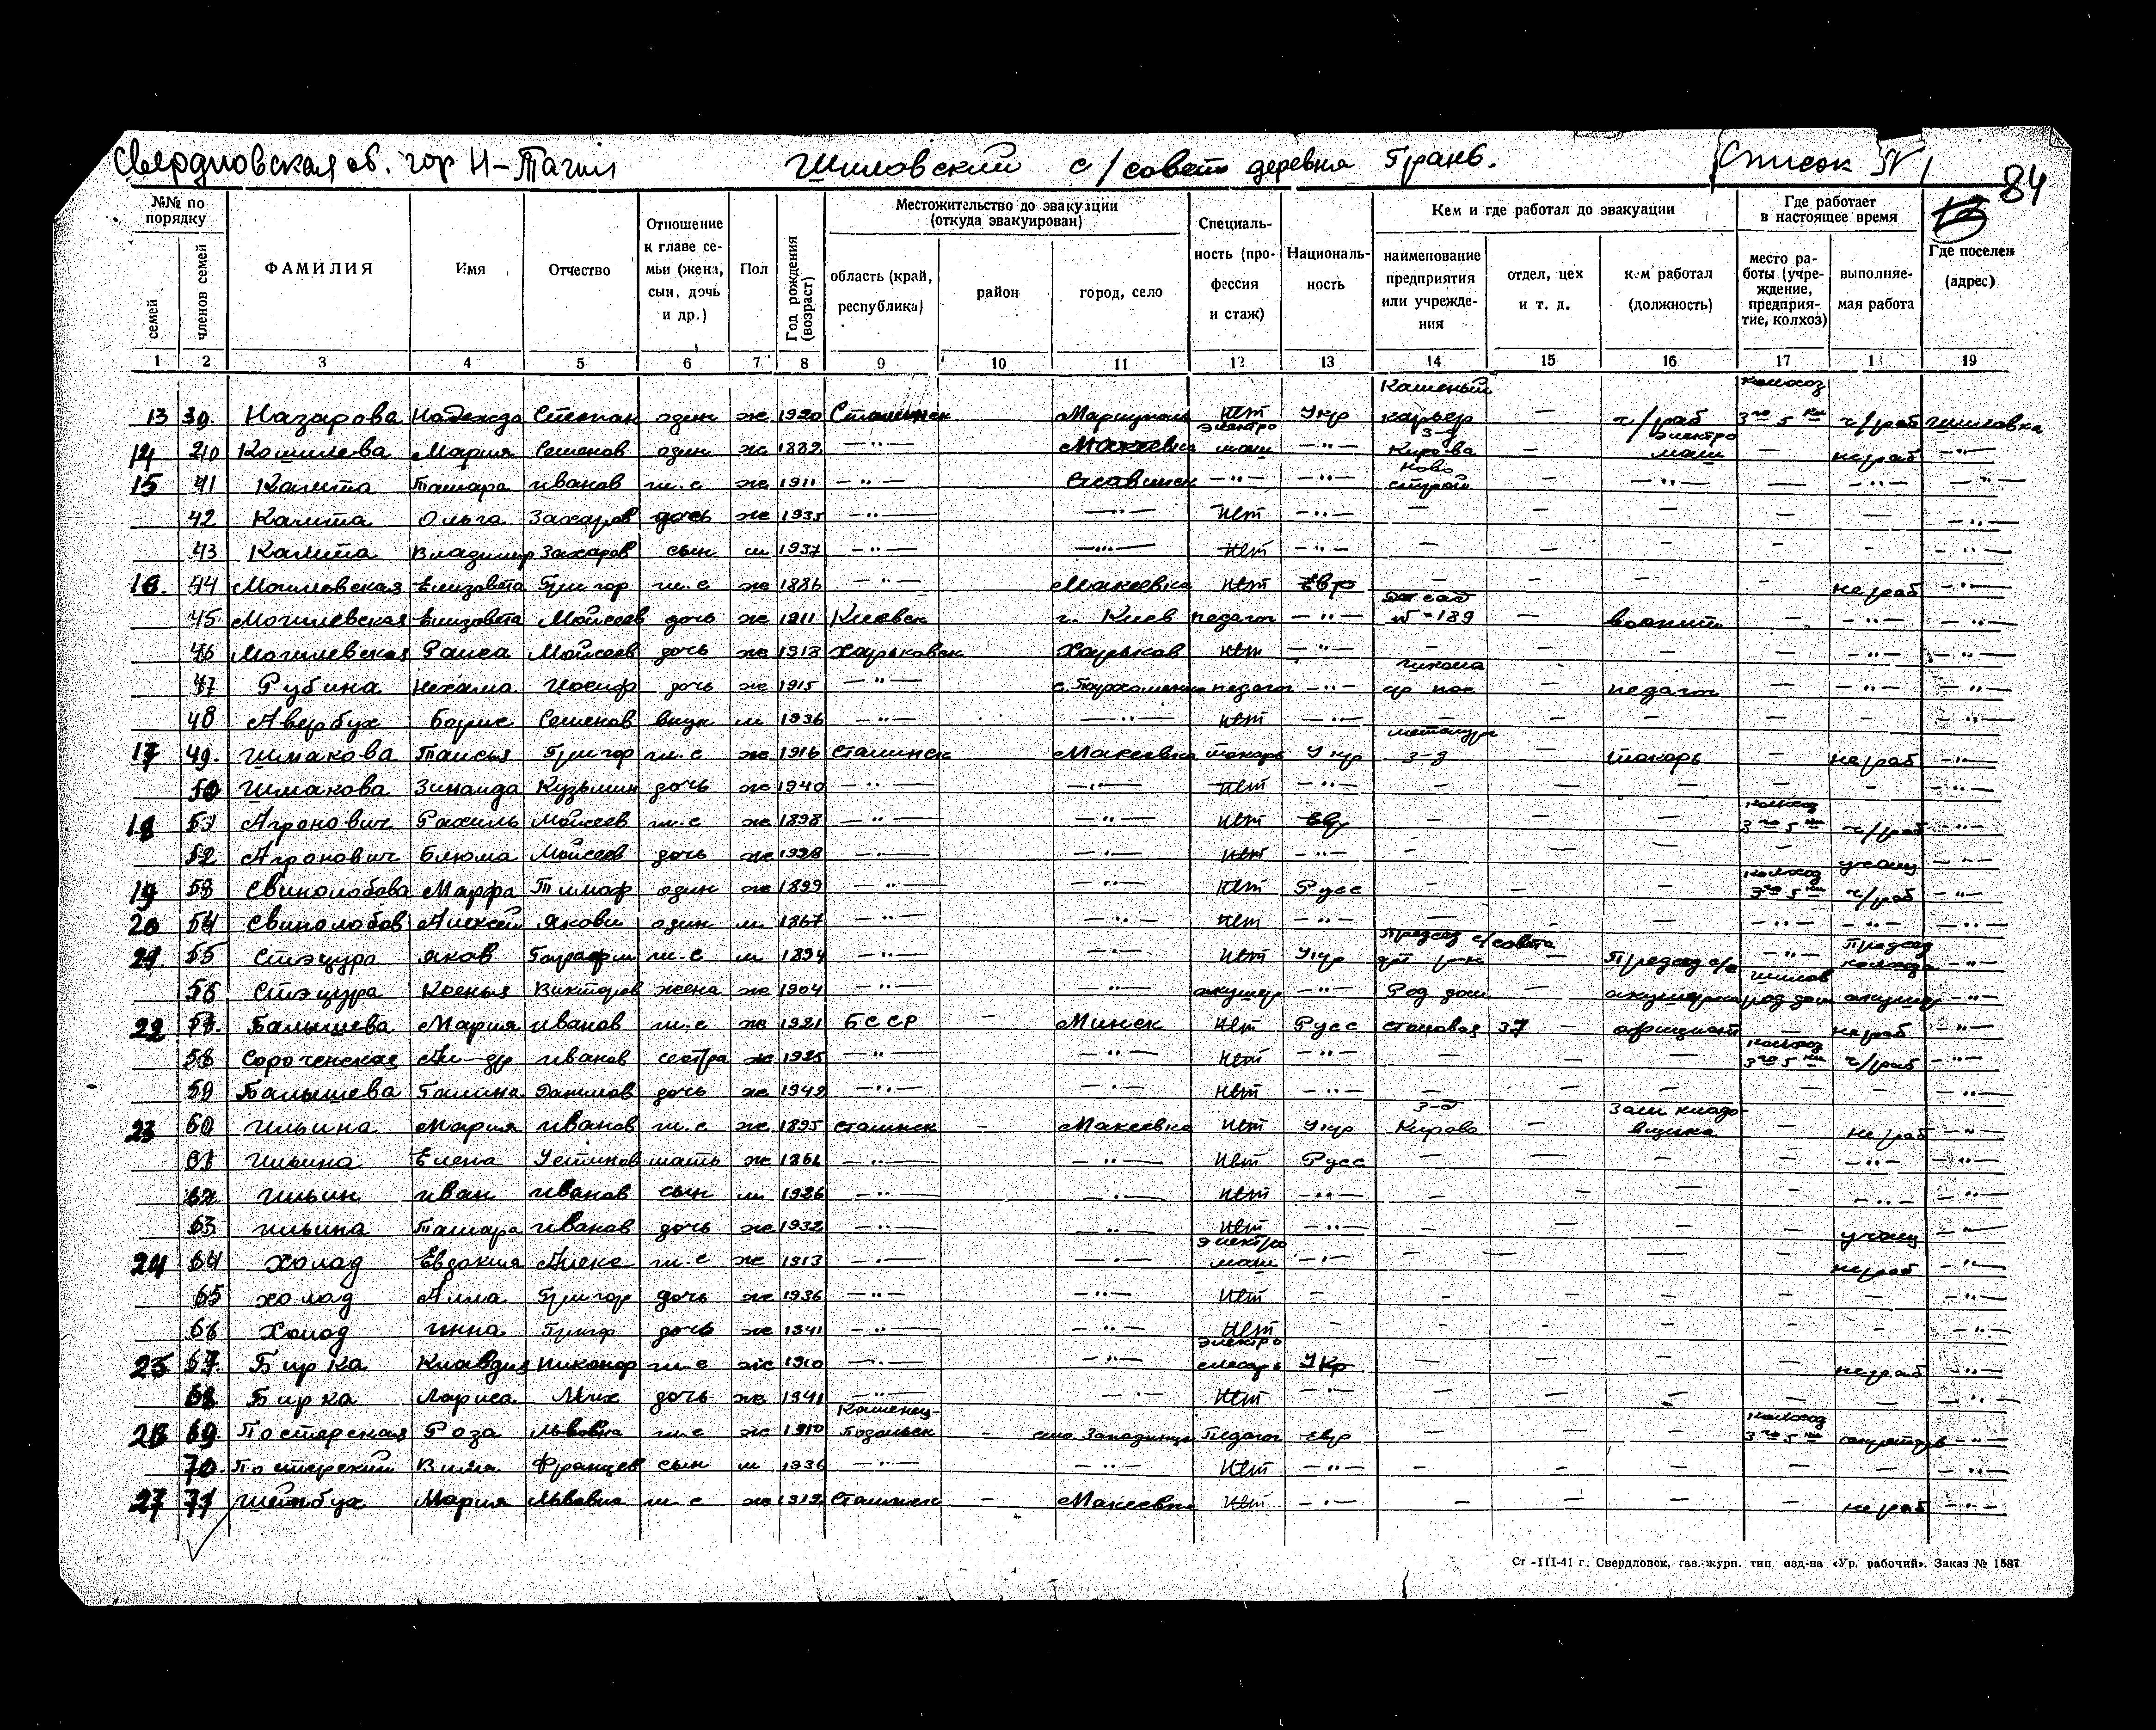 Свердловская об. гор Н-Тагил Шиловский с/совет деревня Грань. Список №1
84
№№ по порядку
семей
членов семей
ФАМИЛИЯ
Имя
Отчество
Отношение к главе семьи (жена, сын, дочь и др.)
Пол
Год рождения (возраст)
Местожительство до эвакуации (откуда эвакуирован)
область (край, республика)
район
город, село
Специальность (профессия и стаж)
Националь-ность
Кем и где работал до эвакуации
наименование предприятия или учрежде-ния
отдел, цех и т. д.
кем работал (должность)
Где работает в настоящее время
место ра-боты (учре-ждение, предприя-тие, колхоз)
выполняе-мая работа
Где поселен (адрес)
1 2 3 4 5 6 7 8 9 10 11 12 13 14 15 16 17 18 19
13 39. Назарова Надежда Степан один ж 1920 Сталинск Мариуполь нет Укр Каменый карьер — ч/раб колхоз 3го 5ки ч/раб Шиловка
14 40 Кошелева Мария Семенов один ж 1882 —"— Макеевка электро маш —"— з-д Кирова — электро маш — не раб —"—
15 41 Калита Тамара Иванов гл. с ж 1911 —"— Славянск —"— —"— Ново строй — —"— — —"— —"—
42 Калита Ольга Захаров дочь ж 1935 —"— —"— нет —"— — — — — — —"—
43 Калита Владимир Захаров сын м 1937 —"— —"— нет —"— — — — — — —"—
16. 44 Могилевская Елизовета Григор гл. с ж 1886 —"— Макеевка нет Евр — — — не раб —"—
45. Могилевская Елизовета Мойсеев дочь ж 1911 Киевск г. Киев педагог —"— дет сад № 189 — воспит. — —"— —"—
46 Могилевская Раиса Мойсеев дочь ж 1918 Харьковск Харьков нет —"— — — — — —"— —"—
47 Рубина Нехама Иосиф дочь ж 1915 —"— педагог —"— школа — педагог — —"— —"—
48 Авербух Борис Семенов внук м 1936 —"— —"— нет —"— — — — — — —"—
17 49. Шмакова Таисья Григор гл. с ж 1916 Сталинск Макеевка токарь Укр металург з-д — токарь — не раб —"—
50 Шмакова Зинаида Кузьмин дочь ж 1940 —"— —"— нет —"— — — — — — —"—
18 51 Агронович Рахиль Мойсеев гл. с ж 1898 —"— —"— нет Евр — — — колхоз 3го 5ки ч/раб —"—
52 Агронович Блюма Мойсеев дочь ж 1928 —"— —"— нет —"— — — — — учащ —"—
19 53 Свинолобова Марфа Тимоф один ж 1899 —"— —"— нет Русс — — — колхоз 3го 5ки ч/раб —"—
20 54 Свинолобов Алексей Яковл один м 1867 —"— —"— нет —"— — — — —"— —"— —"—
21. 55 Стэцура Яков гл. с м 1894 —"— —"— нет Укр Председ с/совета — Председ с/с —"— Председ колхоза —"—
56 Стэцура Ксенья Викторов жена ж 1904 —"— —"— акушер —"— Род дом — акушерка Шилов род дом акушер —"—
22 57. Балышева Мария Иванов гл. с ж 1921 БССР — Минск нет Русс столовая 37 — официант — не раб —"—
58 Сороченская Ал-др Иванов сестра ж 1925 —"— —"— нет —"— — — — колхоз 3го 5ки ч/раб —"—
59 Балышева Галина Данилов дочь ж —"— —"— нет —"— — — — — — —"—
23 60 Ильина Мария Иванов гл. с ж 1895 Сталинск — Макеевка нет Укр з-д Кирова — Зам кладовщика — не раб —"—
61 Ильина Елена Устинов мать ж —"— —"— нет Русс — — — — —"— —"—
62 Ильин Иван Иванов сын м 1926 —"— —"— нет —"— — — — — —"— —"—
63 Ильина Тамара Иванов дочь ж 1932 —"— —"— нет —"— — — — — учащ —"—
24 64 Холод Евдокия Алекс гл. с ж 1913 —"— —"— электро маш —"— — — — — не раб —"—
65 Холод Алла Григор дочь ж 1936 —"— —"— нет — — — — — — —"—
66 Холод Инна Григор дочь ж 1941 —"— —"— нет — — — — — — —"—
25 67. Бирка Клавдия Никонор гл. с ж 1910 —"— —"— электро слесарь Укр — — — — не раб —"—
68 Бирка Лариса Мих дочь ж 1941 —"— —"— нет —"— — — — — — —"—
26 69 Постерская Роза Львовна гл. с ж 1910 Каменец-Подольск — село Западинцы Педагог Евр — — — колхоз 3го 5ки —"—
70. Постерский Вила Францев сын м 1936 —"— —"— нет —"— — — — — — —"—
27 71 Мария Львовна гл. с ж 1912 Сталинск — Макеевка нет —"— — — — — не раб —"—
Ст -III-41 г. Свердловск, газ.-журн. тип. изд-ва «Ур. рабочий». Заказ № 1587